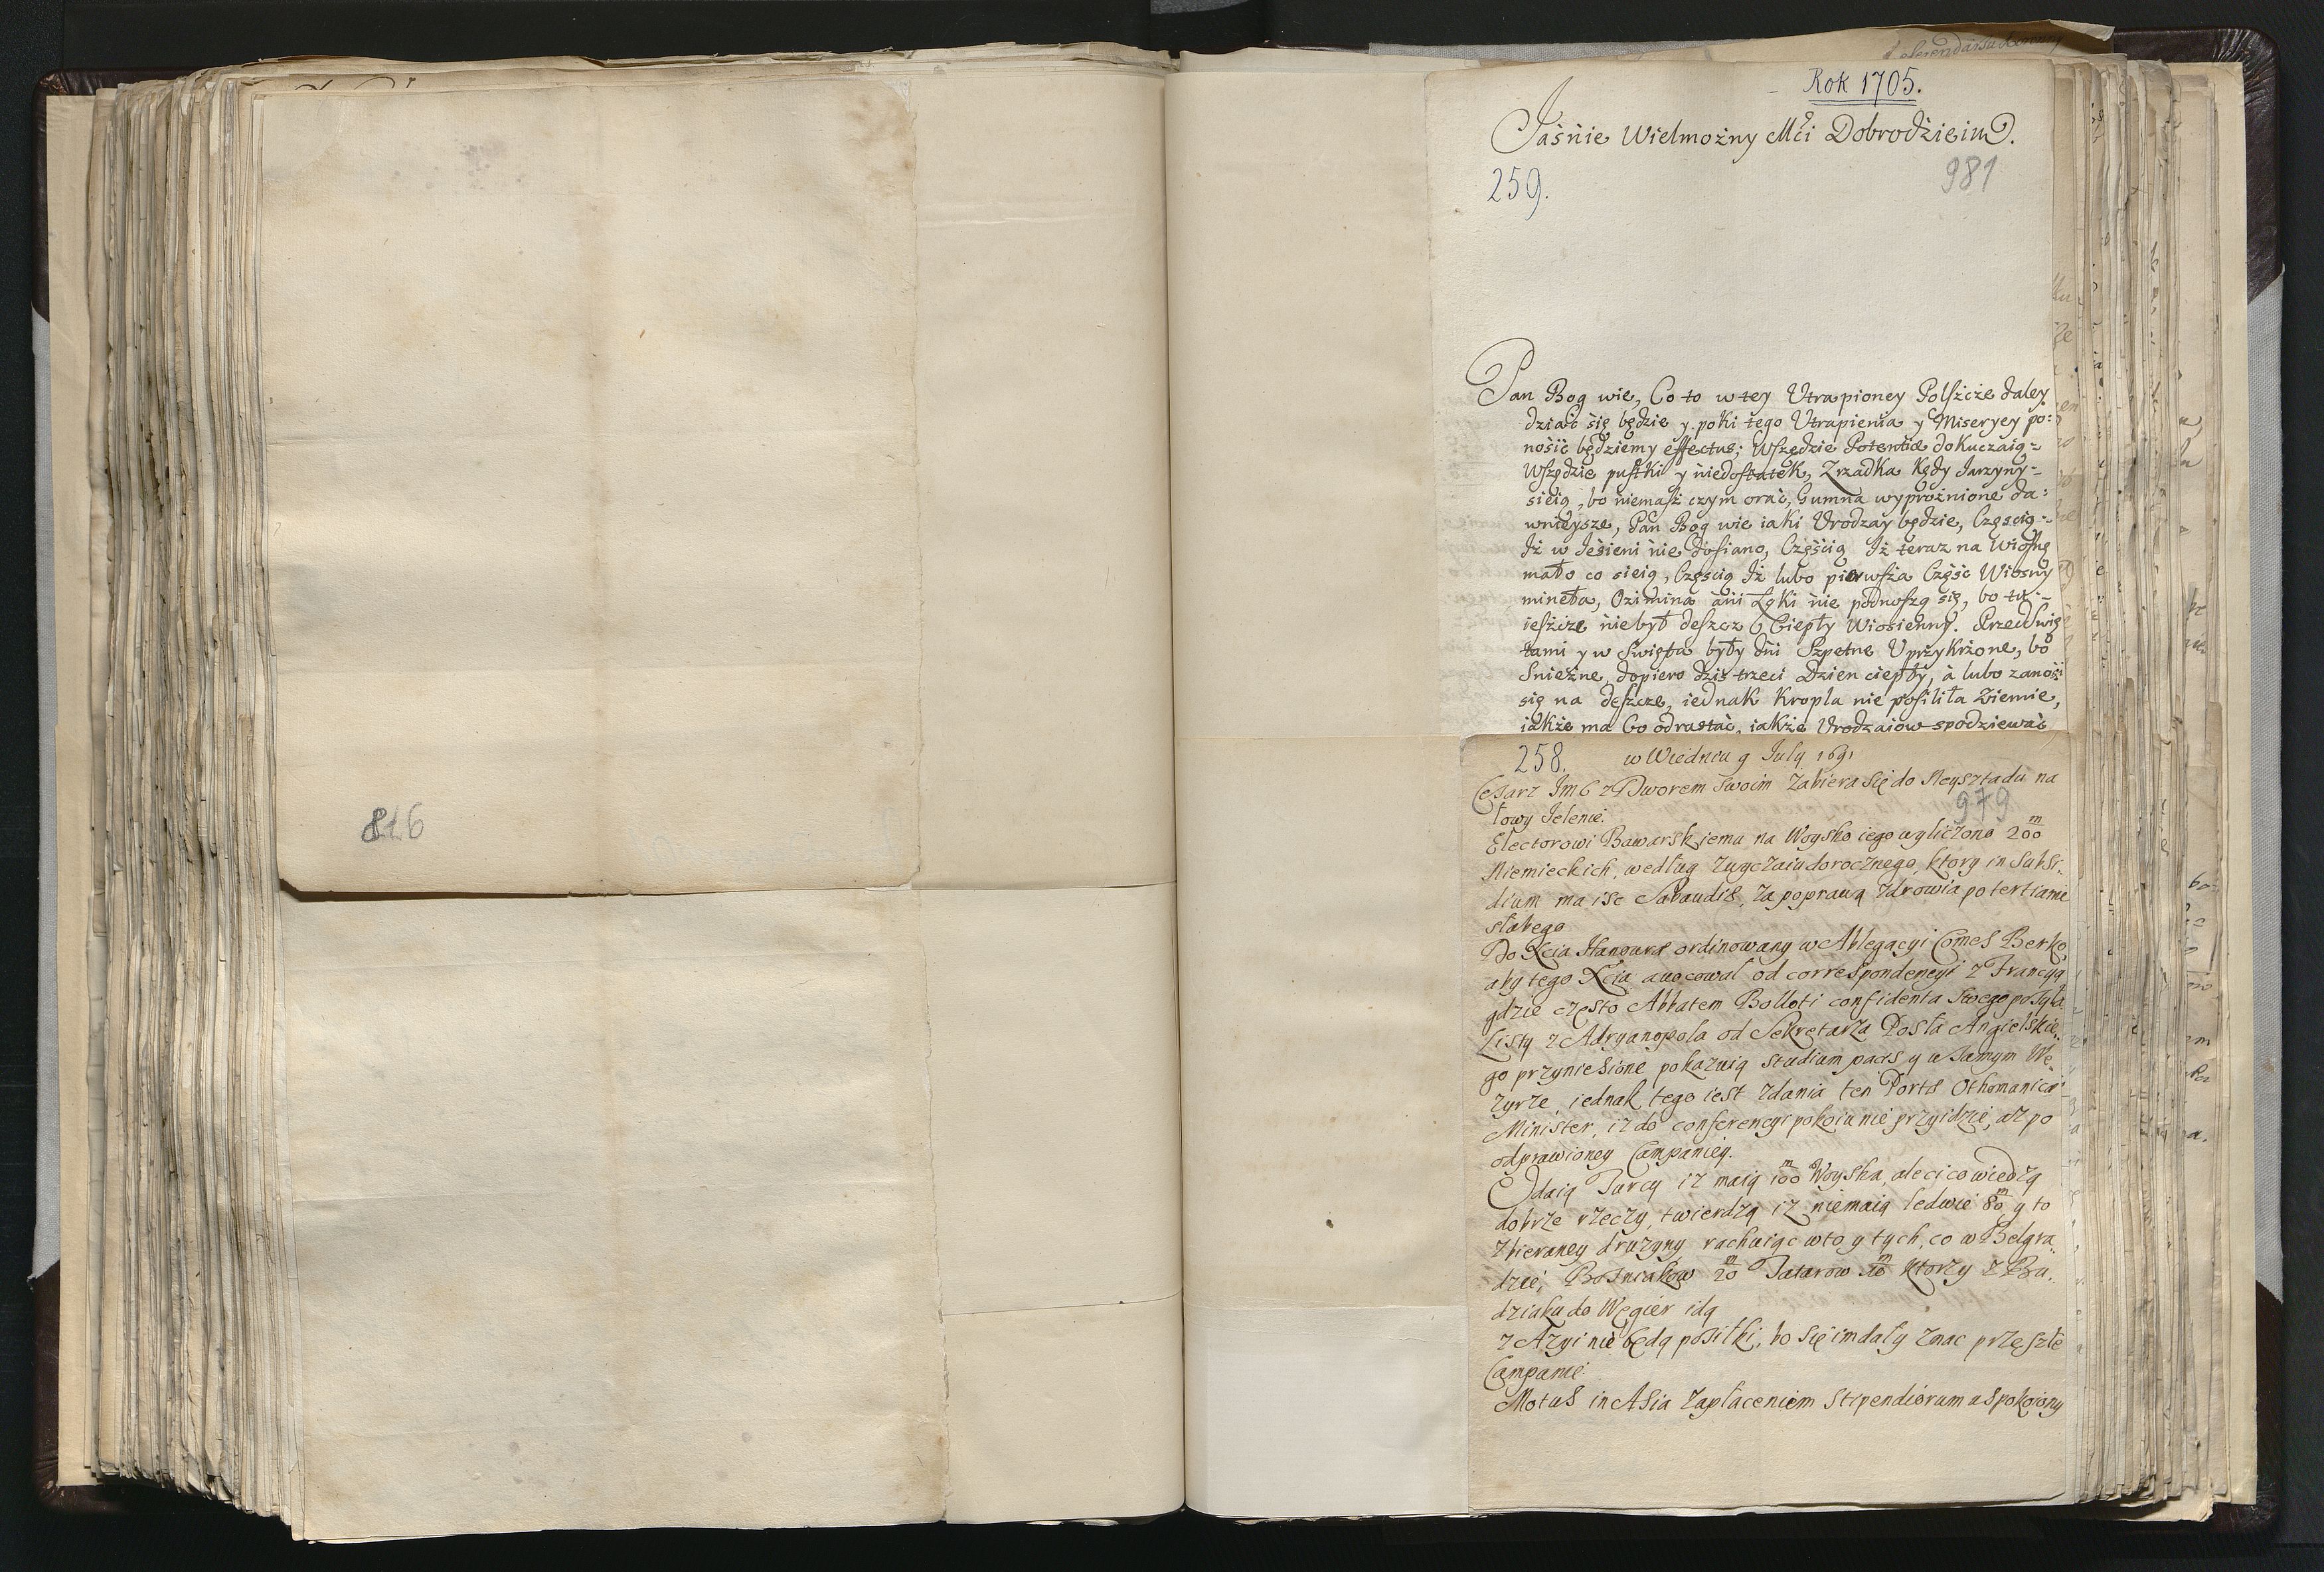 816
Rok 1705.
Jaśnie Wielmożny Mći Dobrodźieiu.
981
259.
Pan Bog wie, Co to w tey Utrapioney Polszcze daley
dziać się będzie y poki tego Utrapienia y Miseryey po:
nośić będziemy effectus; Wszędzie Potentiæ dokuczaią
Wszędzie pustki y niedostatek, Zrzadka kędy Jarzyny
sieią, bo niemasz czym orać, Gumna wyprożnione da:
wnieysze, Pan Bog wie iaki Urodzay będzie, Częscią
Iż w Jesieni nie dosiano, Częścią Iż teraz na Wiosnę
mało co sieią, Częscią Iż lubo pierwsza Część Wiosny
mineła, Ozimina ani Łąki nie podnoszą się, bo tu
ieszcze nie był deszcz Ciepły Wiosienny. Przed Swię
tami y w Swięta były dni Szpetne Uprzykrzone, bo
Snieżne, dopiero dziś trzeci Dzien ciepły, a lubo zanośi
się na deszcze, iednak kropla nie posiliła Ziemie,
iakże ma Co odrastać, iakże Urodzaiow spodziewać
258. w Wiedniu 9 July 1691
Cesarz Jm͠c z Dworem swoim zabiera się do Neysztadu na
979
łowy Jelenie.
Electorowi Bawarskiemu na Woysko iego wyliczono 200 m
Niemieckich, według zwyczaiu dorocznego, ktory in subsi„
dium ma isc Sabaudiæ, za poprawą zdrowia po tertianie
słabego
Do Xcia Hanoura ordinowany w Ablegacyi Comes Berko,
aby tego Xcia auocował od correspondencyi z Francyą
gdzie często Abbatem Bolloti confidenta swego posyła
Listy z Adryanopola od Sekretarza Posła Angielskie„
go przyniesione pokazuią studium pacis y w samym We„
zyrze, iednak tego iest zdania ten Portæ Othomanicæ
Minister, iz do conferencyi pokoiu nie przyidzie, az po
odprawioney Campaniey.
Udaią Turcy iz maią 100 m Woyska, ale ci co wiedzą
dobrze rzeczy, twierdzą iz niemaią ledwie 80 m y to
zbieraney druzyny rachuiąc w to y tych, co w Belgra„
dzie, Bosniakow 20 m Tatarow 10 m ktorzy z Bu„
dziaku do Węgier idą
z Azyi nie będą posiłki, bo się im dały znac przeszłe
Campanie.
Motus in Asia zapłaceniem stipendiorum uspokoiony